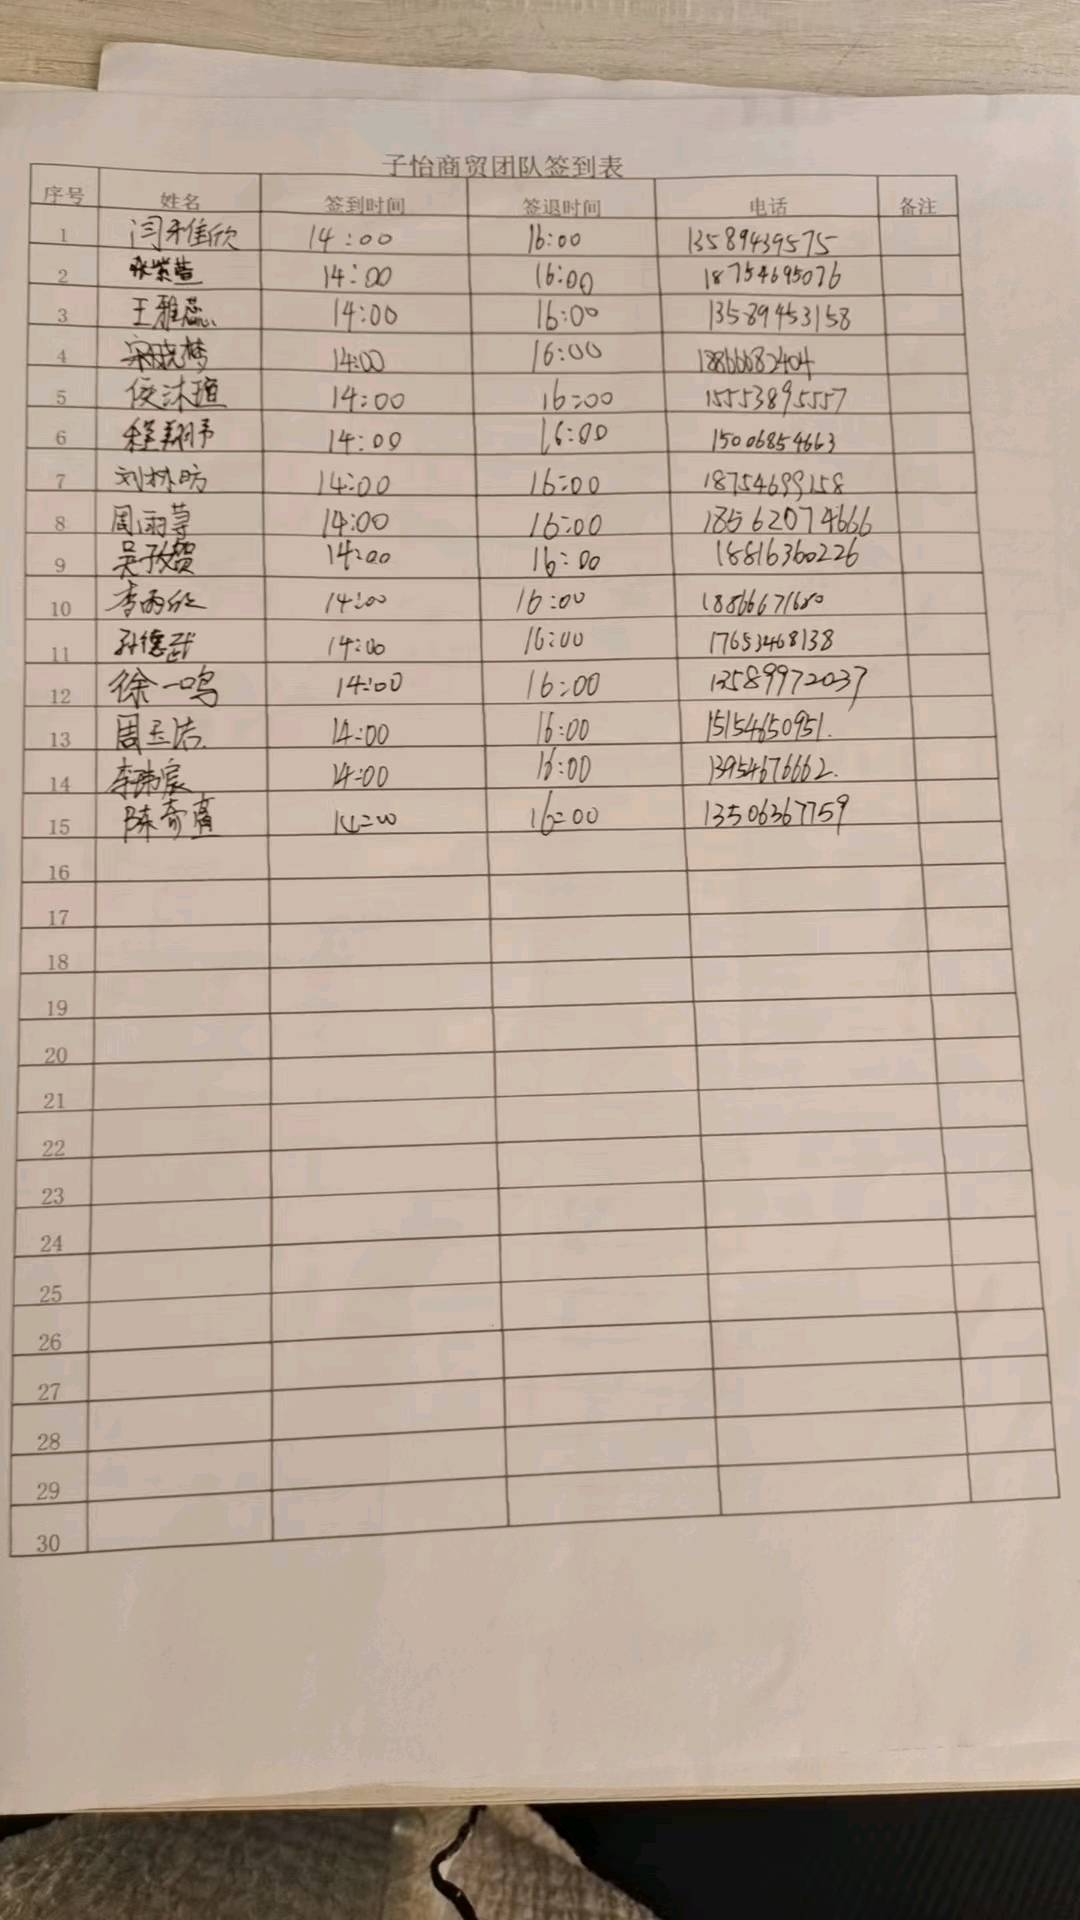 子怡商贸团队签到表
序号 姓名 签到时间 签退时间 电话 备注
1 闫雅欣 14:00 16:00 13589439575
2 张紫萱 14:00 16:00 18754695076
3 王雅蕊 14:00 16:00 13589453158
4 宋晓梦 14:00 16:00 18866682404
5 侯沐瑄 14:00 16:00 15553895557
6 程翔予 14:00 16:00 15006854663
7 刘林昉 14:00 16:00 18754699158
8 周雨萼 14:00 16:00 18562074666
9 吴孜贺 14:00 16:00 18816360226
10 李雨欣 14:00 16:00 18866671680
11 孙德武 14:00 16:00 17653468138
12 徐一鸣 14:00 16:00 13589972037
13 周玉浩 14:00 16:00 15154650951.
14 李玮宸 14:00 16:00 13954676662.
15 陈奇 14:00 16:00 13506367759
16
17
18
19
20
21
22
23
24
25
26
27
28
29
30